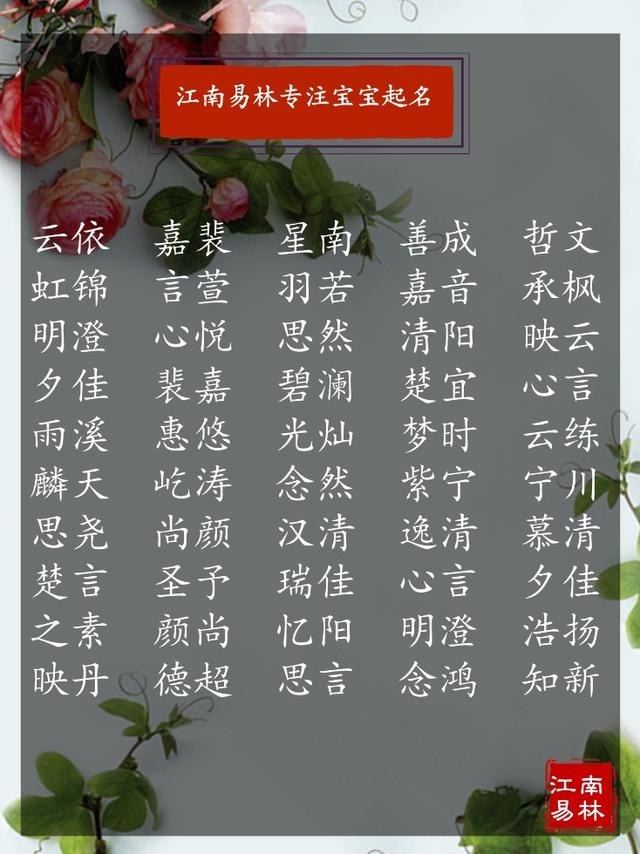 江南易林专注宝宝起名
云依 嘉裴 星南 善成 哲文
虹锦 言萱 羽若 嘉音 承枫
明澄 心悦 思然 清阳 映云
夕佳 裴嘉 碧澜 楚宜 心言
雨溪 惠悠 光灿 梦时 云练
麟天 屹涛 念然 紫宁 宁川
思尧 尚颜 汉清 逸清 慕清
楚言 圣予 瑞佳 心言 夕佳
之素 颜尚 忆阳 明澄 浩扬
映丹 德超 思言 念鸿 知新
江南
易林